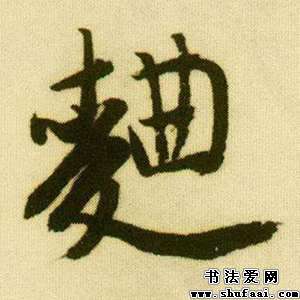 麯
书法爱网
www.shufaai.com